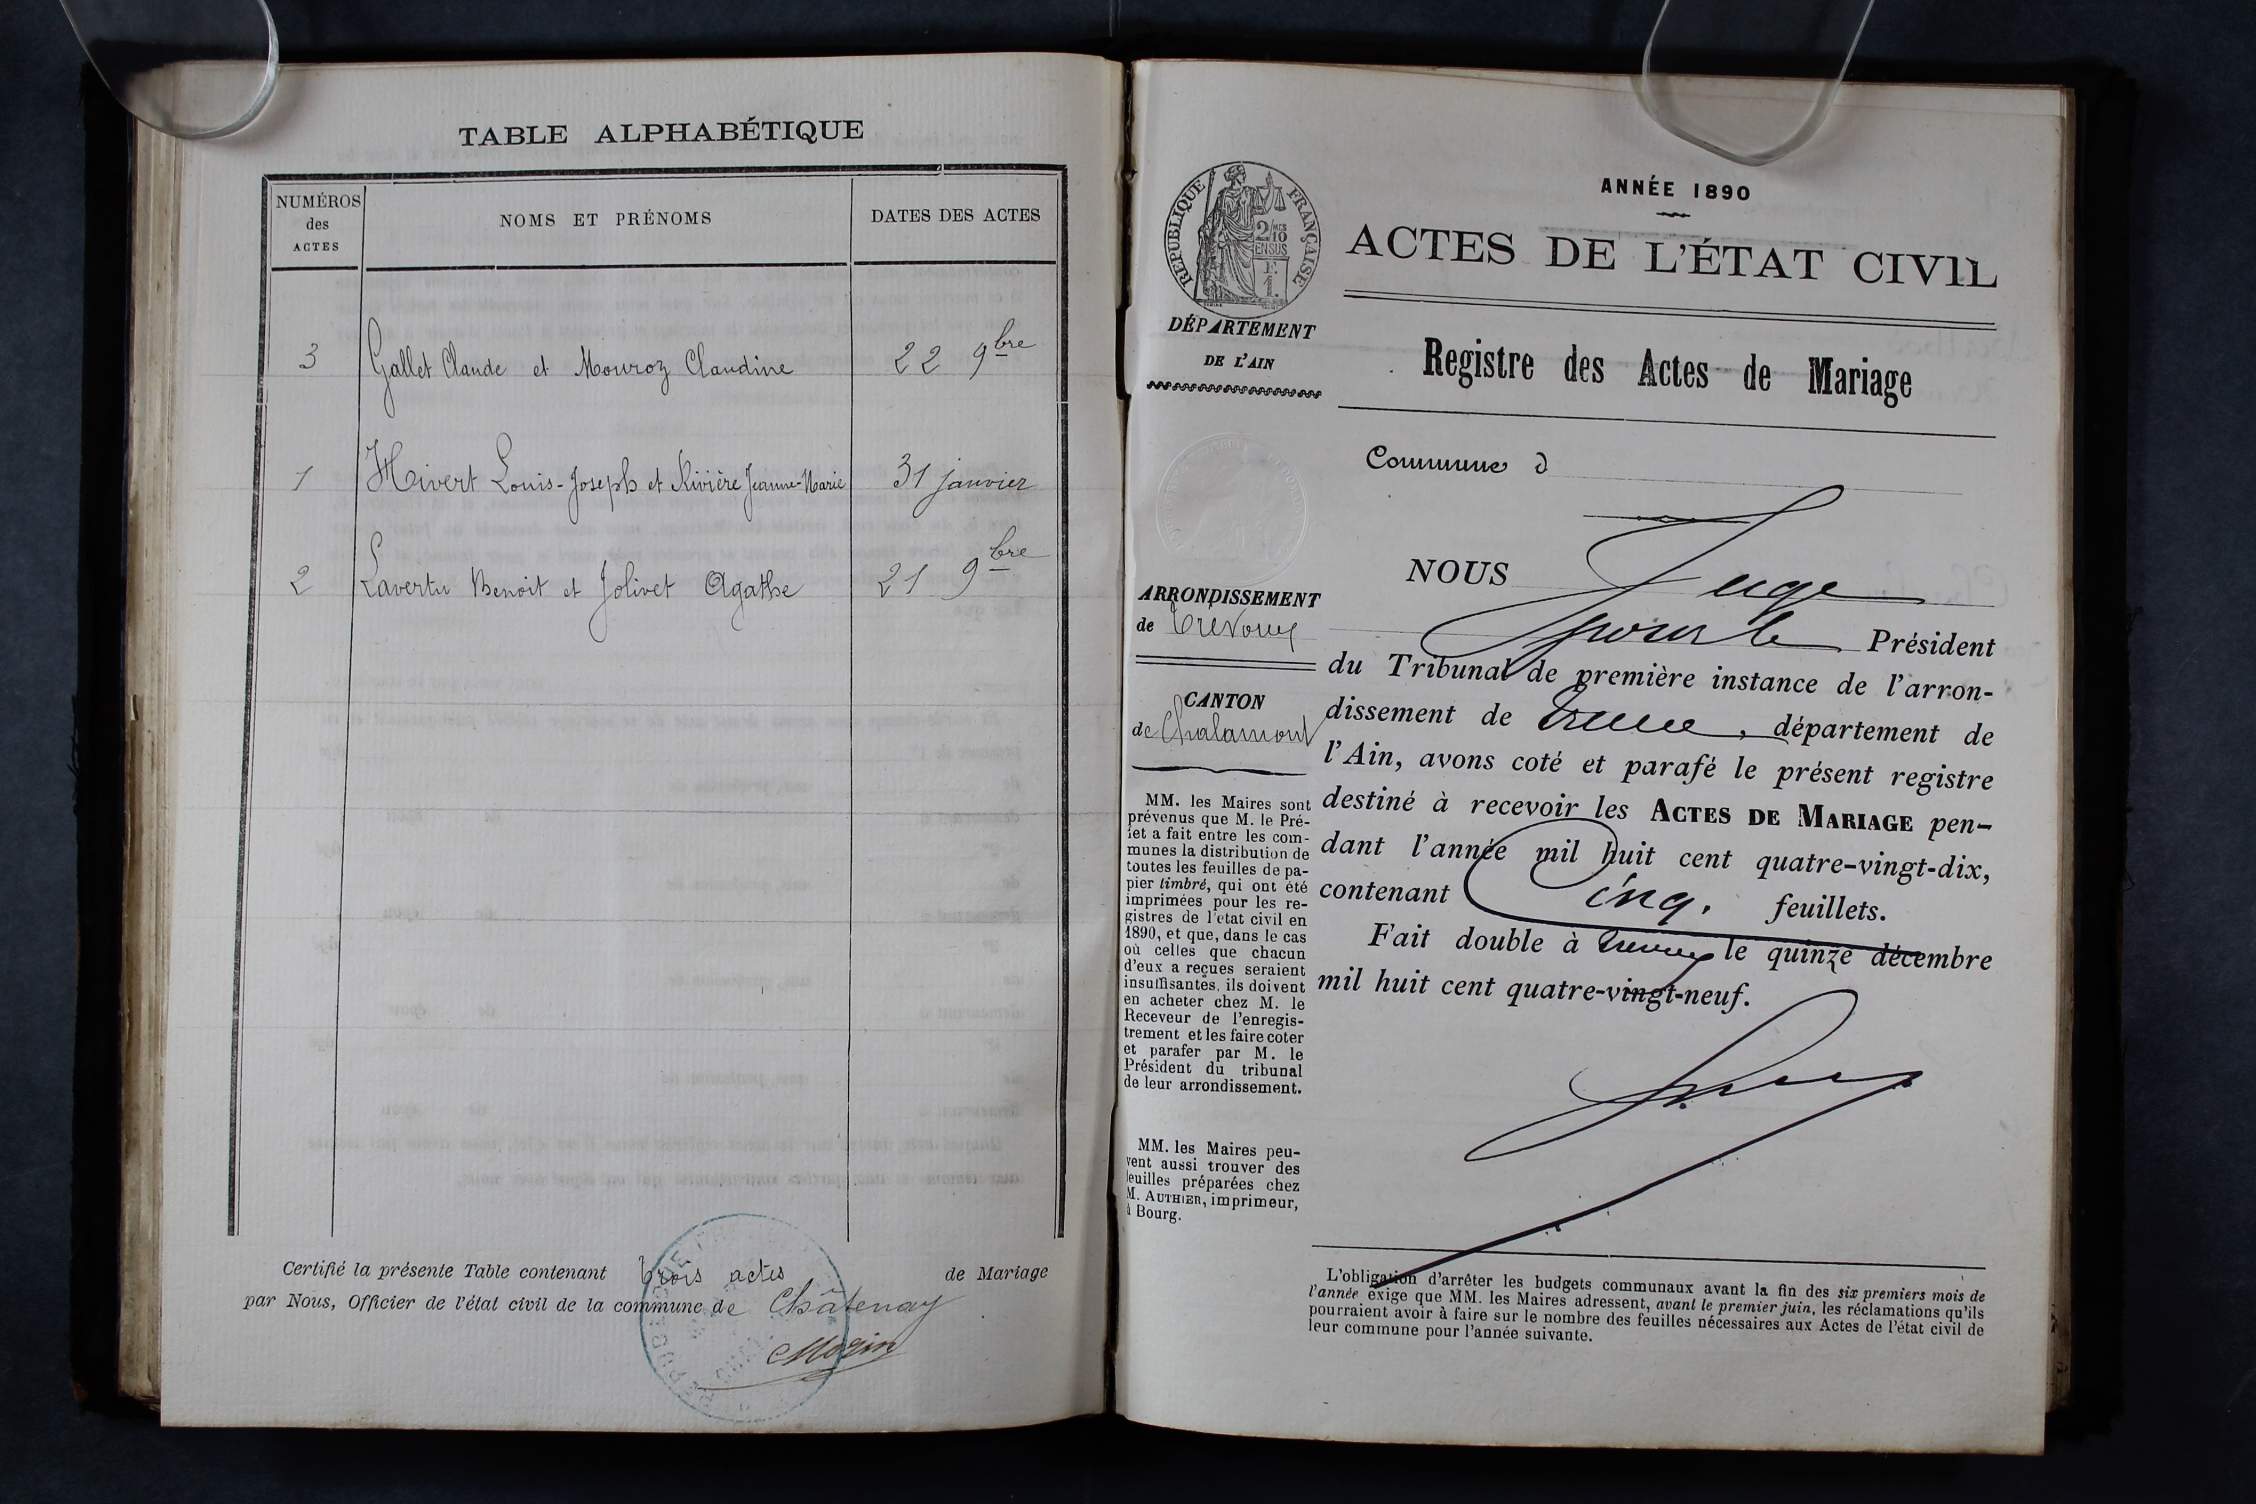 TABLE ALPHABÉTIQUE
NUMÉROS des ACTES NOMS ET PRÉNOMS DATES DES ACTES
3 Gallet Claude et Mouroz Claudine 22 9bre
1 Hivert Louis-Joseph et Rivière Jeanne-Marie 31 janvier
2 Lavertu Benoit et Jolivet Agathe 21 9bre
Certifié la présente Table contenant trois actes de Mariage
par Nous, Officier de l'état civil de la commune de Châtenay
Morin
ANNÉE 1890
ACTES DE L'ÉTAT CIVIL
Registre des Actes de Mariage
RÉPUBLIQUE FRANÇAISE
2/10 EN SUS
DÉPARTEMENT
DE L'AIN
ARRONDISSEMENT
de Trévoux
CANTON
de Chalamont
MM. les Maires sont
prévenus que M. le Pré-
fet a fait entre les com-
munes la distribution de
toutes les feuilles de pa-
pier timbré, qui ont été
imprimées pour les re-
gistres de l'état civil en
1890, et que, dans le cas
où celles que chacun
d'eux a reçues seraient
insuffisantes, ils doivent
en acheter chez M. le
Receveur de l'enregis-
trement et les faire coter
et parafer par M. le
Président du tribunal
de leur arrondissement.
MM. les Maires peu-
vent aussi trouver des
feuilles préparées chez
M. AUTHIER, imprimeur,
à Bourg.
Commune d
NOUS Juge
pour le Président
du Tribunal de première instance de l'arron-
dissement de Trévoux, département de
l'Ain, avons coté et parafé le présent registre
destiné à recevoir les ACTES DE MARIAGE pen-
dant l'année mil huit cent quatre-vingt-dix,
contenant Cinq. feuillets.
Fait double à Trévoux le quinze décembre
mil huit cent quatre-vingt-neuf.
L'obligation d'arrêter les budgets communaux avant la fin des six premiers mois de
l'année exige que MM. les Maires adressent, avant le premier juin, les réclamations qu'ils
pourraient avoir à faire sur le nombre des feuilles nécessaires aux Actes de l'état civil de
leur commune pour l'année suivante.